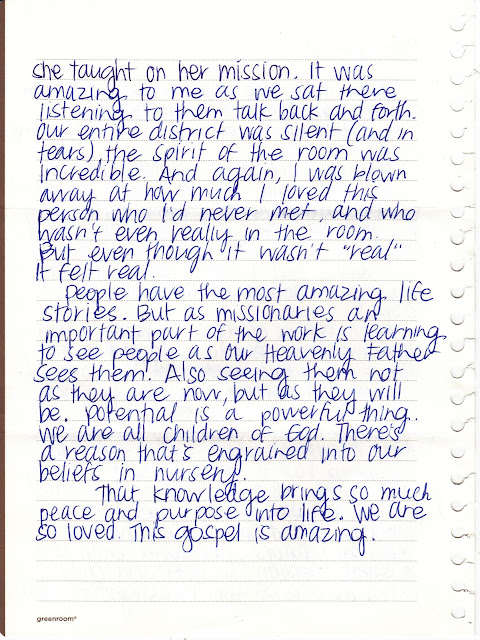 she taught on her mission. It was
amazing to me as we sat there
listening to them talk back and forth.
Our entire district was silent (and in
tears), the spirit of the room was
incredible. And again, I was blown
away at how much I loved this
person who I'd never met, and who
wasn't even really in the room.
But even though it wasn't "real"
it felt real.
People have the most amazing life
stories. But as missionaries an
important part of the work is learning
to see people as our Heavenly Father
sees them. Also seeing them not
as they are now, but as they will
be. Potential is a powerful thing.
We are all children of God. There's
a reason that's engrained into our
beliefs in nursery.
That knowledge brings so much
peace and purpose into life. We are
so loved. This gospel is amazing.
greenroom®